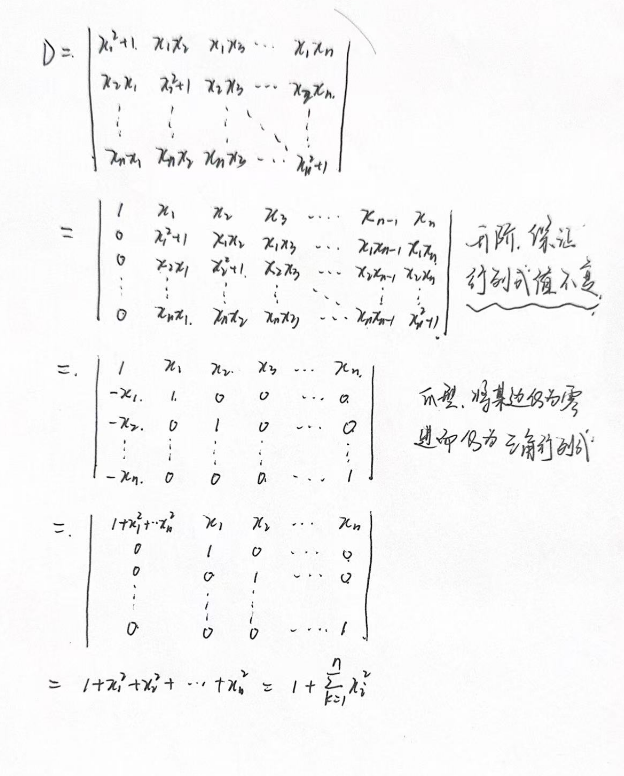 D = | x₁²+1 x₁x₂ x₁x₃ ⋯ x₁xₙ |
| x₂x₁ x₂²+1 x₂x₃ ⋯ x₂xₙ |
| ⋮ ⋮ ⋮ ⋱ ⋮ |
| xₙx₁ xₙx₂ xₙx₃ ⋯ xₙ²+1 |
= | 1 x₁ x₂ x₃ ⋯ xₙ₋₁ xₙ |
| 0 x₁²+1 x₁x₂ x₁x₃ ⋯ x₁xₙ₋₁ x₁xₙ |
| 0 x₂x₁ x₂²+1 x₂x₃ ⋯ x₂xₙ₋₁ x₂xₙ |
| ⋮ ⋮ ⋮ ⋮ ⋱ ⋮ ⋮ |
| 0 xₙx₁ xₙx₂ xₙx₃ ⋯ xₙxₙ₋₁ xₙ²+1 |
升阶,保证
行列式值不变
= | 1 x₁ x₂ x₃ ⋯ xₙ |
| -x₁ 1 0 0 ⋯ 0 |
| -x₂ 0 1 0 ⋯ 0 |
| ⋮ ⋮ ⋮ ⋮ ⋮ |
| -xₙ 0 0 0 ⋯ 1 |
爪型,将某边化为零
进而化为三角行列式
= | 1+x₁²+⋯xₙ² x₁ x₂ ⋯ xₙ |
| 0 1 0 ⋯ 0 |
| 0 0 1 ⋯ 0 |
| ⋮ ⋮ ⋮ ⋮ |
| 0 0 0 ⋯ 1 |
= 1+x₁²+x₂²+ ⋯ +xₙ² = 1 + ∑ₖ₌₁ⁿ xᵢ²